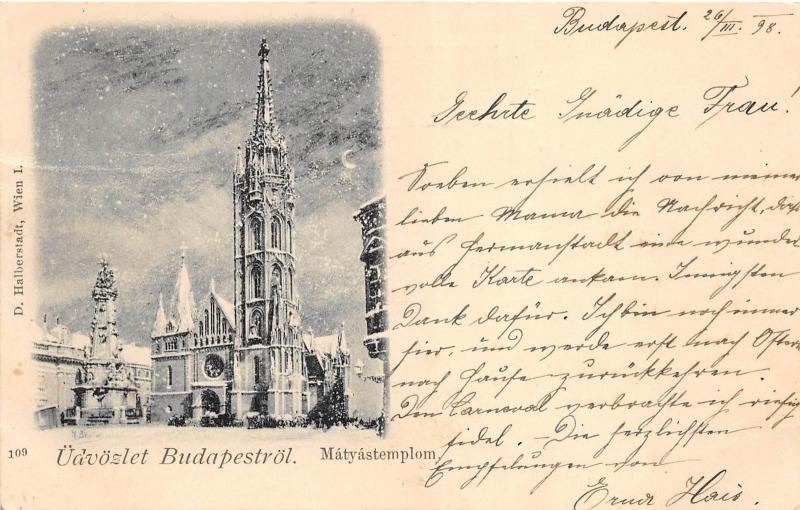 Budapest. 26/III. 98.
Geehrte Gnädige Frau!
Soeben erhielt ich von meiner
lieben Mama die Nachricht, daß
aus Hermannstadt eine wunder
volle Karte ankam. Innigsten
Dank dafür. Ich bin noch immer
hier, und werde erst nach Ostern
nach Hause zurückkehren.
Den Carneval verbrachte ich riesig
fidel. - Die herzlichsten
Empfelungen von
Erna Hais.
D. Halberstadt, Wien I.
109 Üdvözlet Budapestról. Mátyástemplom